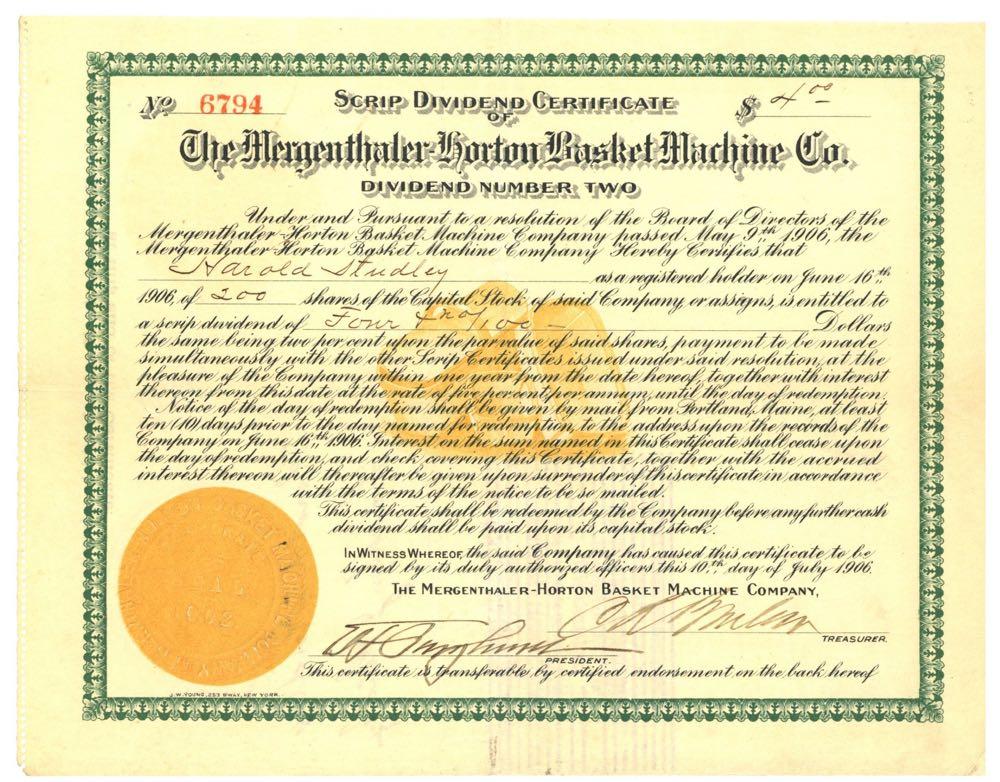 No 6794 SCRIP DIVIDEND CERTIFICATE $ 4 00
OF
The Mergenthaler-Horton Basket Machine Co.
DIVIDEND NUMBER TWO
Under and Pursuant to a resolution of the Board of Directors of the
Mergenthaler-Horton Basket Machine Company passed May 9th 1906, the
Mergenthaler-Horton Basket Machine Company Hereby Certifies that
Harold Studley as a registered holder on June 16th
1906, of 200 shares of the Capital Stock of said Company, or assigns, is entitled to
a scrip dividend of Four & no/100 — Dollars
the same being two per cent upon the par value of said shares, payment to be made
simultaneously with the other Scrip Certificates issued under said resolution, at the
pleasure of the Company within one year from the date hereof, together with interest
thereon from this date at the rate of five per cent per annum, until the day of redemption.
Notice of the day of redemption shall be given by mail, from Portland, Maine, at least
ten (10) days prior to the day named for redemption, to the address upon the records of the
Company on June 16th 1906. Interest on the sum named in this Certificate shall cease upon
the day of redemption, and check covering this Certificate, together with the accrued
interest thereon, will thereafter be given upon surrender of this certificate in accordance
with the terms of the notice to be so mailed.
This certificate shall be redeemed by the Company before any further cash
dividend shall be paid upon its capital stock.
IN WITNESS WHEREOF, the said Company has caused this certificate to be
signed by its duly authorized officers this 10th day of July 1906.
THE MERGENTHALER-HORTON BASKET MACHINE COMPANY,
TREASURER.
PRESIDENT.
This certificate is transferable by certified endorsement on the back hereof
J.W. YOUNG, 253 B'WAY, NEW YORK.